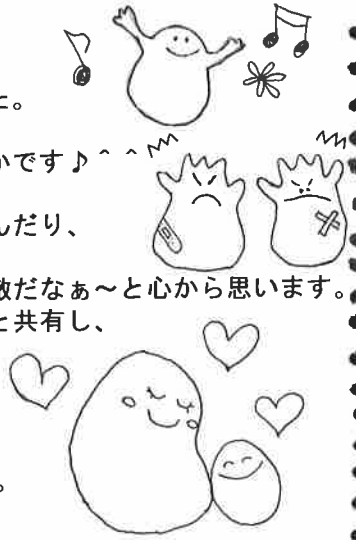 た。
かです♪＾＾
んだり、
敵だなぁ～と心から思います。
と共有し、
。